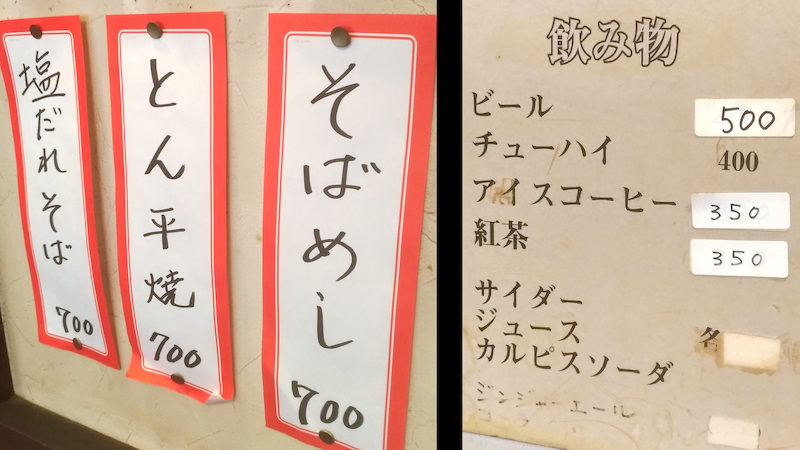 塩だれそば
700
とん平焼
700
そばめし
700
飲み物
ビール 500
チューハイ 400
アイスコーヒー 350
紅茶 350
サイダー
ジュース 各
カルピスソーダ
ジンジャーエール